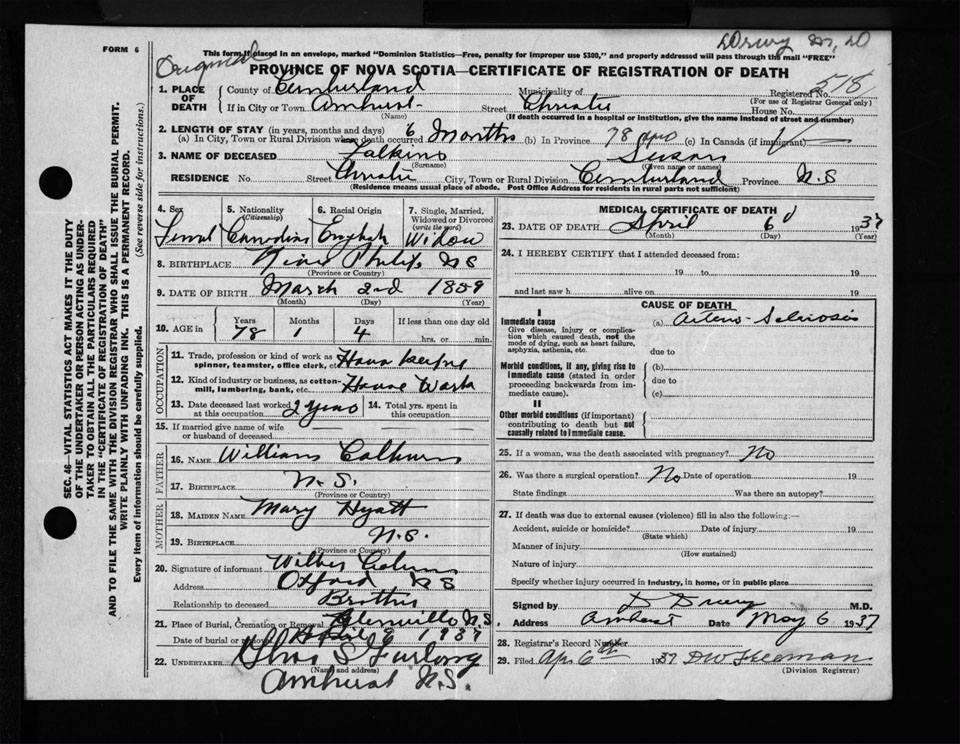 FORM 6
Original
This form if placed in an envelope, marked "Dominion Statistics—Free, penalty for improper use $300," and properly addressed will pass through the mail "FREE"
PROVINCE OF NOVA SCOTIA—CERTIFICATE OF REGISTRATION OF DEATH
1. PLACE OF DEATH County of Cumberland Municipality of Registered No. 518
(For use of Registrar General only)
If in City or Town Amherst Street Christie House No.
(Name) (If death occurred in a hospital or institution, give the name instead of street and number)
2. LENGTH OF STAY (in years, months and days)
(a) In City, Town or Rural Division where death occurred 6 Months (b) In Province 78 (c) In Canada (if immigrant)
3. NAME OF DECEASED Susan
(Surname) (Given name or names)
RESIDENCE No. Street Christie City, Town or Rural Division Cumberland Province N.S
(Residence means usual place of abode. Post Office Address for residents in rural parts not sufficient)
4. Sex 5. Nationality (Citizenship) 6. Racial Origin 7. Single, Married, Widowed or Divorced (write the word)
Canadian English Widow
8. BIRTHPLACE River Philip N S
(Province or Country)
9. DATE OF BIRTH March 2nd 1859
(Month) (Day) (Year)
10. AGE in Years Months Days If less than one day old
78 1 4 hrs. or min.
OCCUPATION
11. Trade, profession or kind of work as spinner, teamster, office clerk, etc.
12. Kind of industry or business, as cotton-mill, lumbering, bank, etc. House Work
13. Date deceased last worked at this occupation 2 years 14. Total yrs. spent in this occupation
15. If married give name of wife or husband of deceased
FATHER
16. NAME William
17. BIRTHPLACE N. S.
(Province or Country)
MOTHER
18. MAIDEN NAME Mary Hyatt
19. BIRTHPLACE N.S.
(Province or Country)
20. Signature of informant
Address Oxford N S
Relationship to deceased Brother
21. Place of Burial, Cremation or Removal Glenville N.S.
Date of burial or removal April 9 1937
22. UNDERTAKER Chas S Furlong
(Name and address)
Amherst N.S.
MEDICAL CERTIFICATE OF DEATH
23. DATE OF DEATH April 6 1937
(Month) (Day) (Year)
24. I HEREBY CERTIFY that I attended deceased from:
19 to 19
and last saw h alive on 19
CAUSE OF DEATH
I
Immediate cause (a) Arterio-Sclerosis
Give disease, injury or complication which caused death, not the mode of dying, such as heart failure, asphyxia, asthenia, etc.
due to
Morbid conditions, if any, giving rise to immediate cause (stated in order proceeding backwards from immediate cause).
(b)
due to
(c)
II
Other morbid conditions (if important) contributing to death but not causally related to immediate cause.
25. If a woman, was the death associated with pregnancy? No
26. Was there a surgical operation? No Date of operation 19
State findings Was there an autopsy?
27. If death was due to external causes (violence) fill in also the following:—
Accident, suicide or homicide? Date of injury 19
(State which)
Manner of injury
(How sustained)
Nature of injury
Specify whether injury occurred in Industry, in home, or in public place
Signed by D Drury M.D.
Address Amherst Date May 6 1937
28. Registrar's Record Number
29. Filed Apr 6th 1937
(Division Registrar)
SEC. 46—VITAL STATISTICS ACT MAKES IT THE DUTY
OF THE UNDERTAKER OR PERSON ACTING AS UNDER-
TAKER TO OBTAIN ALL THE PARTICULARS REQUIRED
IN THE "CERTIFICATE OF REGISTRATION OF DEATH"
AND TO FILE THE SAME WITH THE DIVISION REGISTRAR WHO SHALL ISSUE THE BURIAL PERMIT.
WRITE PLAINLY WITH UNFADING INK. THIS IS A PERMANENT RECORD.
Every item of information should be carefully supplied. (See reverse side for instructions.)